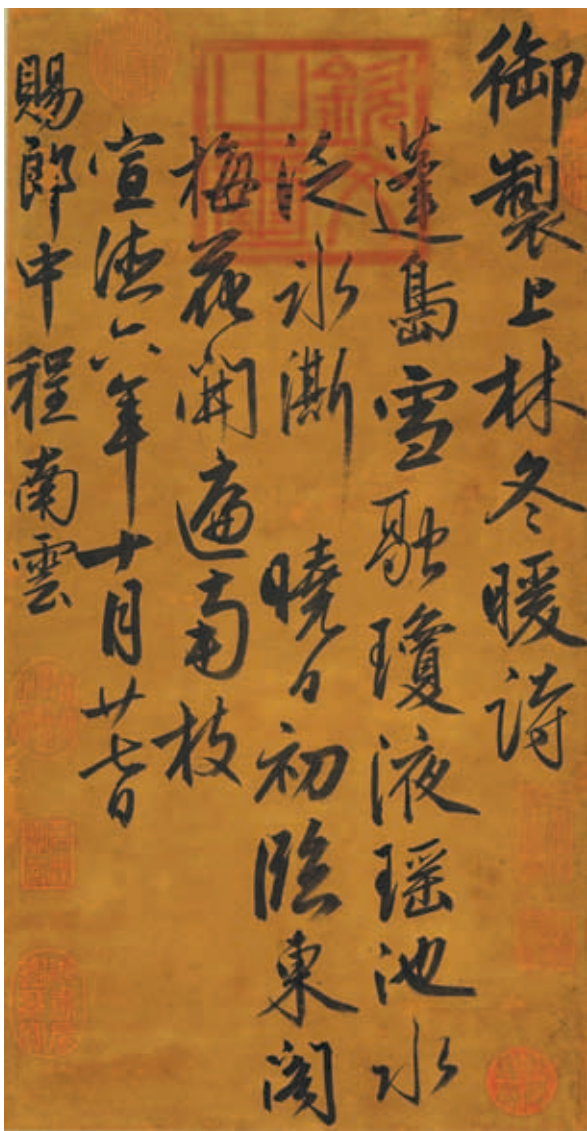 御製上林冬暖詩
蓬島雪融瓊液瑤池水
泛氷澌 曉日初臨東閣
梅花開遍南枝
宣德六年十月廿七日
賜郎中程南雲
欽文之璽